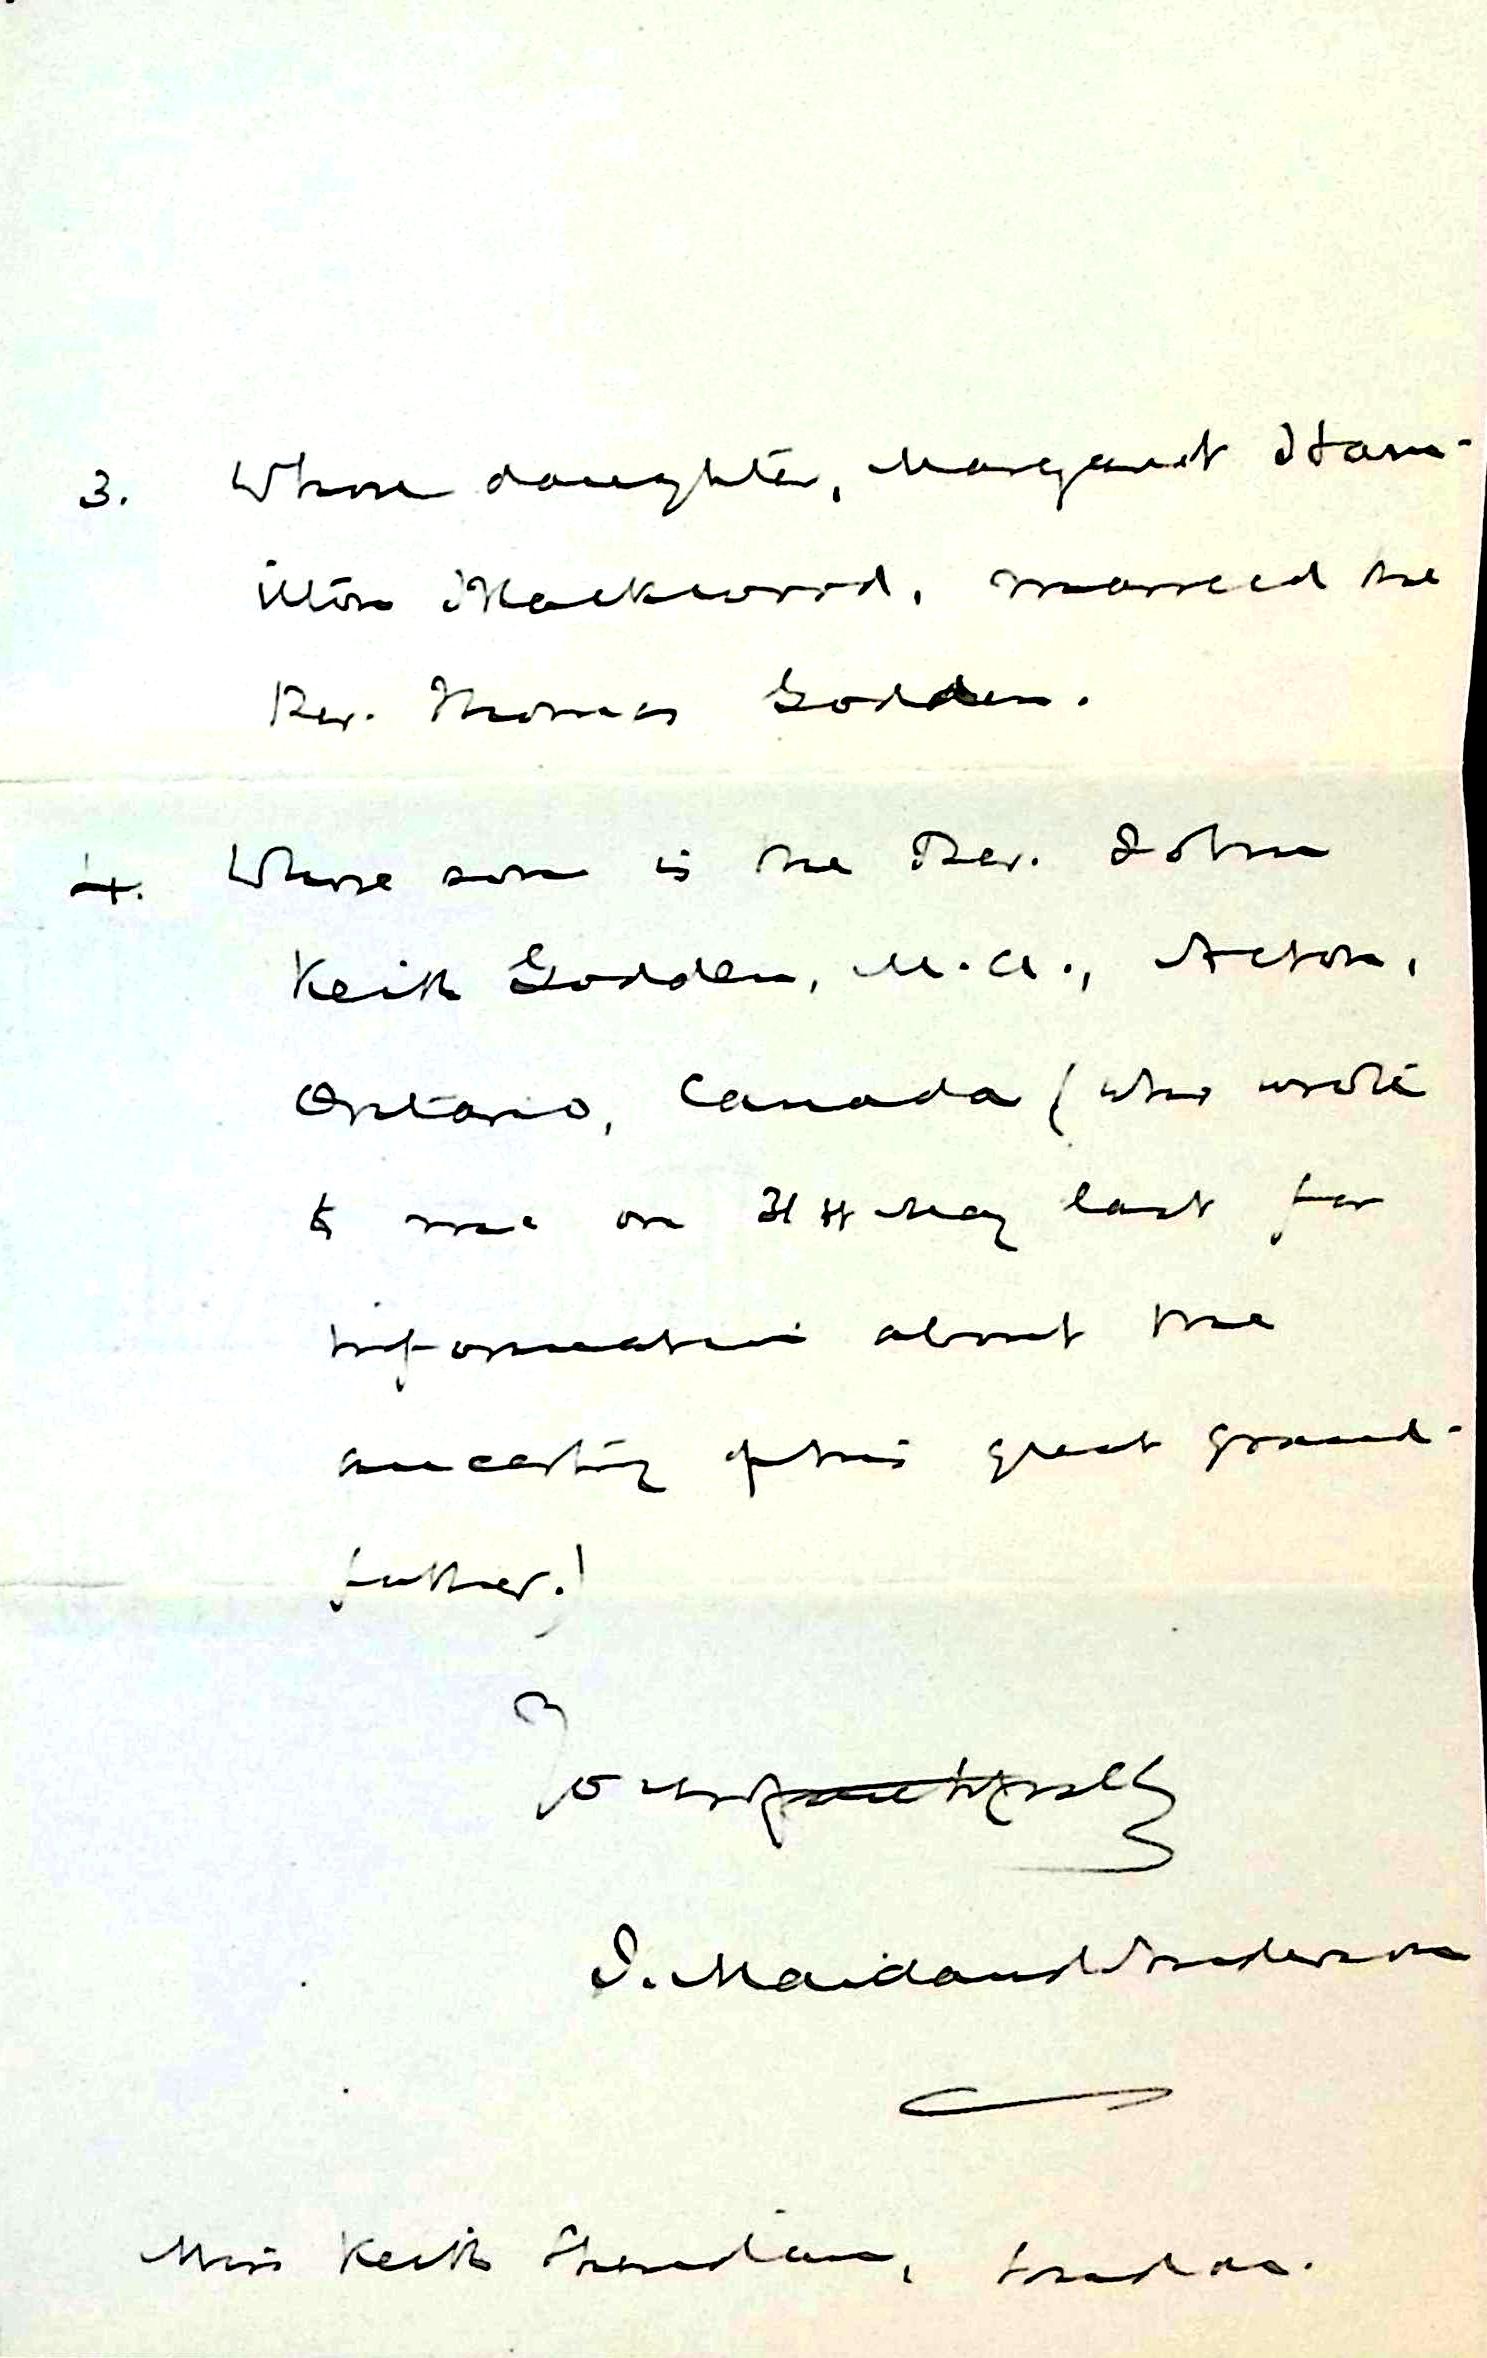 3. Whose daughter, Margaret Ham-
ilton Mackword, married the
Rev. Thomas Godden.
4. Whose son is the Rev. John
Keith Godden, M.A., Acton,
Ontario, Canada (who wrote
to me on May last for
information about the
ancestry of his great grand-
father.)
Yours faithfully
J. Maitland Anderson
Miss Keith Sheridan, London.